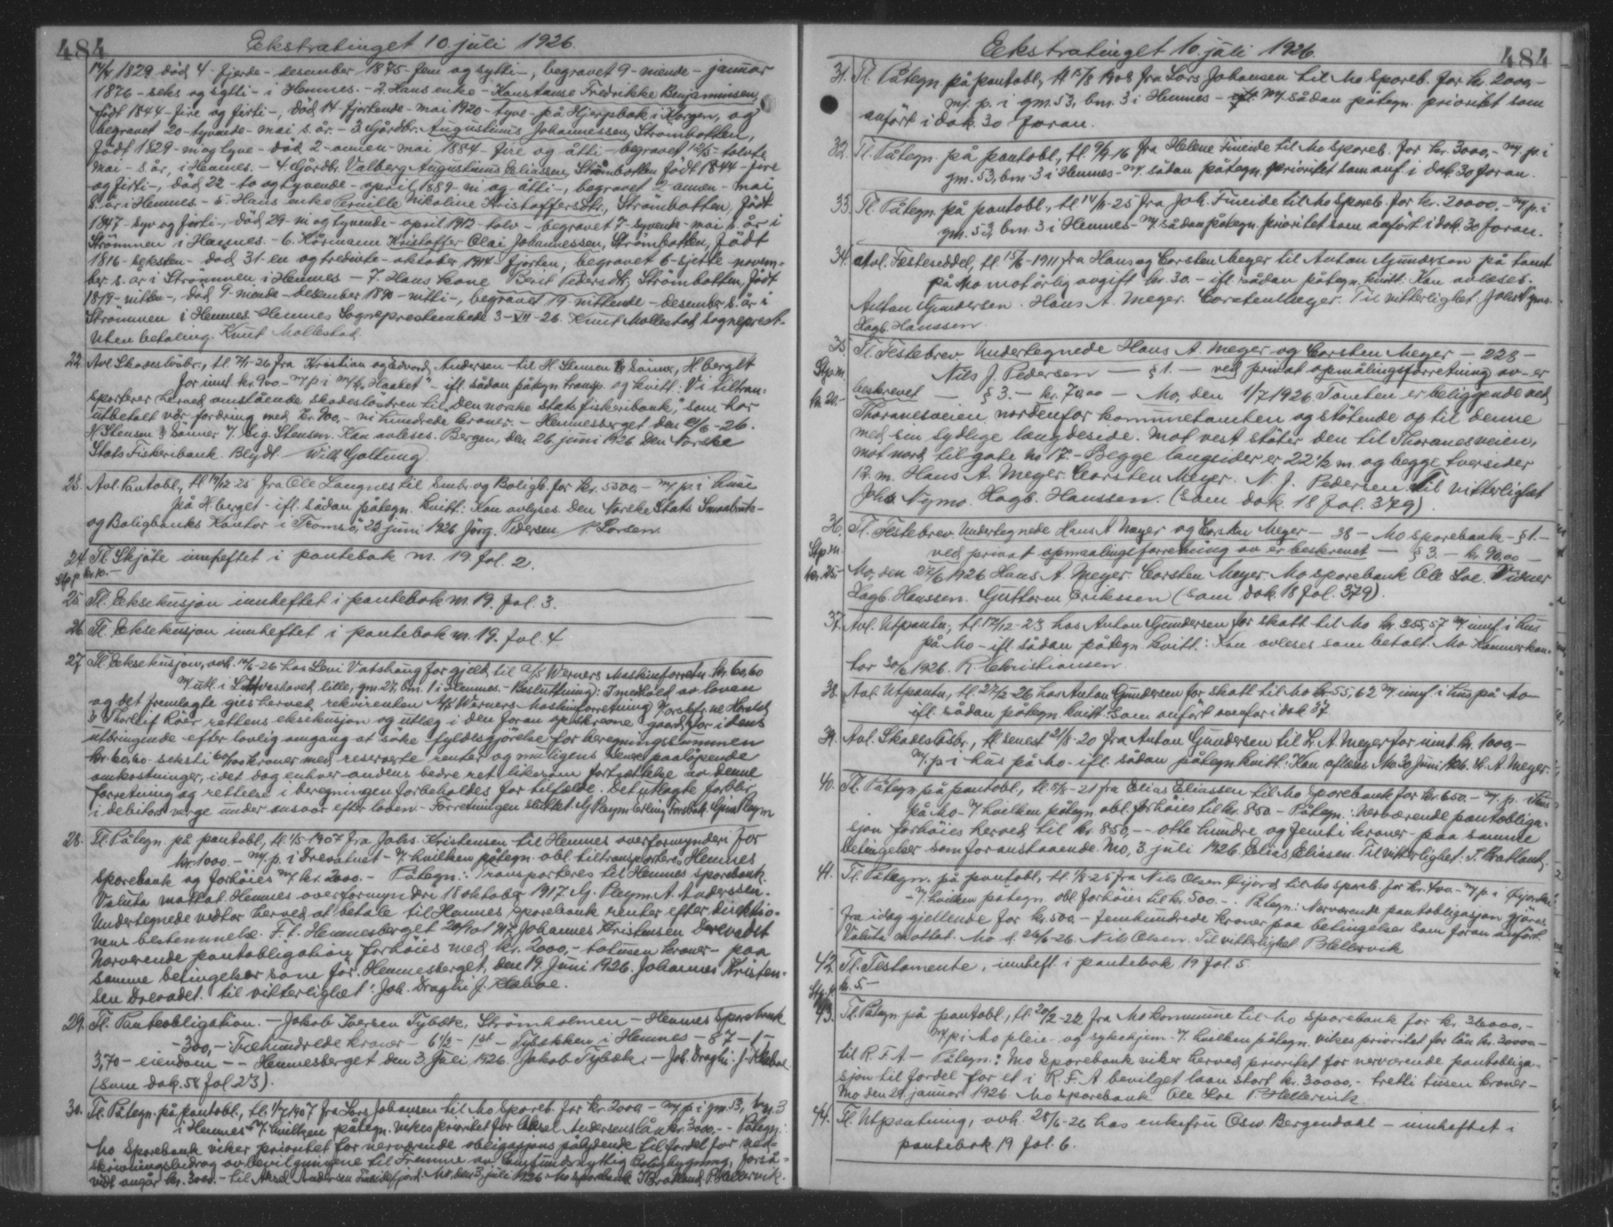 484 Ekstratinget 10 juli 1926.
14/4 1829 död 4 - fjerde - desember 1875 - fem og sytti -, begravet 9 - niende - januar
1876 - seks og sytti - i Hemnes. - 2. Hans enke - Konstanse Fredrikke Benjaminsen,
født 1844 - fire og firti -, död 14 - fjortende - mai 1920 - tyve - på Hjerpbak i Korgen, og
begravet 20 - tyvende - mai s. år. - 3. Gårdbr. Augustinus Johannessen, Strømbotten,
født 1829 - ni og tyve - död 2 - annen - mai 1884 - fire og åtti - begravet 12/5 - tolvte
mai - s. år, i Hemnes. - 4. Gårdbr. Valberg Augustinus Eliassen, Strømbotten født 1844 - fire
og firti -, död 22 - to og tyvende - april 1889 - ni og åtti -, begravet 2 annen - mai
s. år i Hemnes - 5. Hans enke Pernille Nikoline Kristoffersdtr., Strømbotten, født
1847 - syv og firti -, död 29 - ni og tyvende - april 1912 - tolv - begravet 7 - syvende - mai s. år i
Strømmen i Hemnes. - 6. Kårmann Kristoffer Olai Johannessen, Strømbotten, født
1816 - seksten - död 31 - en og tredivte - oktober 1914 - fjorten, begravet 6 - sjette - novem-
ber s. år i Strømmen i Hemnes - 7 Hans kone Berit Pedersdtr, Strømbotten, født
1819 - nitten -, död 9 - niende - desember 1890 - nitti -, begravet 19 - nittende - desember s. år i
Strømmen i Hemnes. Hemnes Sogneprestembede 3 - VII - 26. Knut Mollestad sogneprest.
Uten betaling. Knut Mollestad
22. Avl. Skadeslösbr., tl. 7/1-26 fra Kristian og Edvard Andersen til H. Stensen & Sönner, H berget
for inntil kr. 900 - m/p i m/k "Haabet" - ifl. sådan påtegn. transp. og kvitt: Vi tiltran-
sporterer herved omstående skadeslösbrev til Den norske stats fiskeribank, som har
utbetalt vår fordring med kr. 900,- ni hundrede kroner. - Hemnesberget den 21/6 - 26.
H Stensen & Sönner v/ Sig. Stensen. Kan avleses. Bergen, den 26 juni 1926 Den Norske
Stats Fiskeribank. Blydt Will. Galtung.
23. Avl. Pantobl., tl. 17/12 25 fra Ole Langnes til Småbr. og Boligb. for kr. 5500,- m/p. i huse
på H. berget - ifl. sådan påtegn. kvitt. Kan avlyses. Den Norske Stats Småbruk-
og Boligbanks Kontor i Tromsö, 23 juni 1926 Jörg. Pedersen / P. Larsen.
24. Tl. Skjöte innheftet i pantebok nr. 19 fol. 2.
Stp. p. kr. 10.-
25. Tl. Eksekusjon innheftet i pantebok nr. 19. fol. 3.
26. Tl. Eksekusjon innheftet i pantebok nr. 19. fol. 4
27. Tl. Eksekusjon, avh. 14/6-26 hos Levi Vatshaug for gjeld til A/S Werners Maskinforretn. kr. 60,60
m/ utl. i Vatshovet, lille, gn. 27, bn. 1 i Hemnes. - Beslutning: I medhold av loven
og det fremlagte gis herved rekvirenten A/S Werners Maskinforretning v/ orsakfr. ne Harald
& Thorleif Roer rettens eksekusjon og utlæg i den foran opskrevne gaard for i dens
utbringende efter lovlig omgang at söke fyldestgjörelse for beregningssummen
kr. 60,60 - seksti 60/100 kroner med reserverte renter og muligens senere paalöpende
omkostninger, i det dog enhver andens bedre ret likesom fortsættelse av denne
forretning og rettelse i beregningen forbeholdes for tilfælde. Det utlagte forblir
i debitors værge under ansvar efter loven. Forretningen sluttet.
28. Tl. Påtegn. på pantobl., tl. 1/5-1907 fra Johs. Kristensen til Hemnes overformynderi for
kr. 1000.- m/p. i Drevatnet - v/ hvilken påtegn. obl. tiltransporteres Hemnes
Sparebank og forhöies m/ kr. 2000. - Påtegn.: Transporteres til Hemnes Sparebank.
Valuta mottat. Hemnes overformynderi 18 oktober 1917. G. Paym. A. Anderssen.
Undertegnede vedtar herved at betale til Hemnes Sparebank renter efter direktio-
nens bestemmelse. F. t. Hemnesberget 20/10 1917. Johannes Kristensen Drevadet
Nærværende pantobligation forhöies med kr. 2000,- totusen kroner - paa
samme betingelser som för. Hemnesberget, den 19. Juni 1926. Johannes Kristen-
sen Drevadet. til vitterlighet: Joh. Draglu J. Hæbøe.
29. Tl. Panteobligation. - Jakob Iversen Tybæk, Strömholmen - Hemnes Sparebank
- 300,- Trehundrede kroner - 6 1/2 - 1st - Tybækken i Hemnes - 87 - 1 -
3,70 - eiendom - - Hemnesberget den 3 Juli 1926 Jakob Tybæk, - Joh. Draglu J. Hæbøe
(Sum dok. 58 fol 213).
30. Tl. Påtegn. på pantobl., tl. 1/7 1907 fra Lars Johansen til Mo Spareb. for kr. 2000 - m/p i gn. 53, bn. 3
i Hemnes v/ hvilken påtegn. vikes prioritet for Aksel Andersens lån kr. 3000.- Påtegn:
Mo Sparebank viker prioritet for nærværende obligasjons pålydende til fordel for ned-
skrivningsbidrag av bevilgningene til Fremme av Samfundsnyttig Boligbygning, forså-
vidt angår kr. 3000.- til Aksel Andersen Finneidfjord. Mo, den 3 juli 1926 Mo Sparebank T. Bratland P. Hellervik.
Ekstratinget 10 juli 1926. 484
31. Tl. Påtegn på pantobl., tl 15/8 1908 fra Lars Johansen til Mo Spareb. for kr. 2000,-
m/ p. i gn. 53, bn. 3 i Hemnes - m/ sådan påtegn. prioritet som
anfört i dok. 30 foran.
32. Tl. Påtegn. på pantobl., tl. 9/9-16 fra Helene Fineide til Mo Spareb. for kr. 3000,- m/ p. i
gn. 53, bn. 3 i Hemnes - m/ sådan påtegn. prioritet som anf. i dok. 30 foran.
33. Tl. Påtegn på pantobl., tl 14/11-25 fra Joh. Fineide til Mo Spareb. for kr. 20000. - m/ p. i
gn. 53, bn. 3 i Hemnes - m/ sådan påtegn. prioritet som anfört i dok. 30 foran.
34. Avl. Festeseddel, tl 15/6-1911 fra Hans og Carsten Meyer til Anton Gundersen på tomt
på Mo mot årlig avgift kr. 30.- ifl. sådan påtegn. kvitt. Kan avleses.
Anton Gundersen. Hans A. Meyer. Carsten Meyer. Til vitterlighet:
Hagb. Hanssen
35. Tl. Festebrev. Undertegnede Hans A. Meyer og Carsten Meyer - 228 -
Stp. m. kr. 20.- Nils J. Pedersen - § 1. - ved privat opmålingsforretning av er
beskrevet - § 3. - kr. 70.00 - Mo, den 1/7 1926. Tomten er beliggende ved
Thoranesveien nordenfor kommunetomten og stötende op til denne
med sin sydlige længdeside. Mot vest stöter den til Thoranesveien,
mot nord til gate no 17. - Begge langsider er 22 1/2 m. og begge tversider
17. m. Hans A. Meyer. Carsten Meyer. N. J. Pedersen. Til vitterlighet
Johs Nymo. Hagb. Hanssen. (Sam dok. 18 fol. 379).
36. Tl. Festebrev. Undertegnede Hans A Meyer og Carsten Meyer - 38 - Mo Sparebank - § 1. -
Stp. m. ved privat opmaalingsforretning av er beskrevet - § 3. - kr. 90,00 -
kr. 25.- Mo, den 22/6 1926 Hans A. Meyer. Carsten Meyer Mo sparebank Ole Loe. Vidner
Hagb. Hanssen. Guttorm Erikssen (Sam. dok. 18 fol. 379).
37. Avl. Utpantn., tl. 17/12-23 hos Anton Gundersen for skatt til Mo kr. 355,57 m/ innf. i hus
på Mo - ifl. sådan påtegn. kvitt: Kan avleses som betalt. Mo Kæmnerkon-
tor 30/6 1926. R. Kristiansen.
38. Avl. Utpantn., tl. 27/2-26 hos Anton Gundersen for skatt til Mo kr. 55,62 m/ innf. i hus på Mo -
ifl. sådan påtegn. kvitt: som anfört ovenfor i dok 37.
39. Avl. Skadeslösbr., tl senest 21/8-20 fra Anton Gundersen til L. A Meyer for innt. kr. 1000,-
m/p. i hus på Mo. ifl. sådan påtegn. kvitt: Kan avleses Mo 30 juni 1926. L. A. Meyer.
40. Tl. Påtegn på pantobl., tl. 5/12-21 fra Elias Eliassen til Mo Sparebank for kr. 650. - m/ p. i hus
på Mo - v/ hvilken påtegn. obl. forhöies til kr. 850 - Påtegn.: Nærværende pantobliga-
sjon forhöies herved til kr. 850,- - otte hundre og femti kroner - paa samme
betingelser som foranstaaende. Mo, 3. juli 1926. Elias Eliasen. Til vitterlighet: T. Bratland,
41. Tl. Påtegn. på pantobl., tl. 1/8-25 fra Nils Olsen Öijord til Mo Spareb. for kr. 400.- m/ p. i
- v/ hvilken påtegn. obl. forhöies til kr. 500.- Påtegn: Nærværende pantobligasjon gjöres
fra idag gjellende for kr. 500,- femhundrede kroner paa betingelser som foran anfört
Valuta mottat. Mo d. 26/6-26. Nils Olsen. Til vitterlighet P. Hellervik
42. Tl. Testamente, innheft i pantebok 19 fol. 5.
Stp. p. kr. 5. -
43. Tl. Påtegn på pantobl., tl. 20/2-22 fra Mo kommune til Mo Sparebank for kr. 36000,-
m/ p. i Mo pleie- og sykehjem v/ hvilken påtegn. vikes prioritet for lån kr. 30000,-
til R. F. A - Påtegn.: Mo Sparebank viker herved prioritet for nærværende pantobliga-
sjon til fordel for et i R. F. A bevilget laan stort kr. 30000,- tretti tusen kroner -
Mo den 29. januar 1926 Mo Sparebank Ole Loe P. Hellervik
44. Tl. Utpantning, avh. 25/6-26 hos enkefru Osw. Bergendahl - innheftet i
pantebok 19 fol. 6.